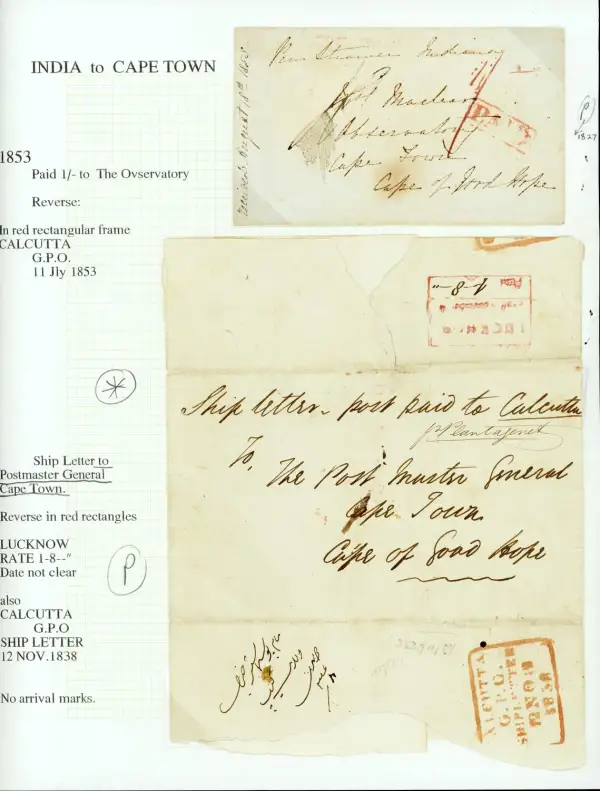 INDIA to CAPE TOWN
1853
Paid 1/- to The Ovservatory
Reverse:
In red rectangular frame
CALCUTTA
G.P.O.
11 Jly 1853
Ship Letter to
Postmaster General
Cape Town.
Reverse in red rectangles
LUCKNOW
RATE 1-8--"
Date not clear
also
CALCUTTA
G.P.O
SHIP LETTER
12 NOV.1838
No arrival marks.
P
Per Steamer
Maclear
Observatory
Cape Town
Cape of Good Hope
PAID
P
1827
1-8-"
Ship letter - post paid to Calcutta
pr Plantagenet
To,
The Post Master General
Cape Town
Cape of Good Hope
CALCUTTA
G.P.O.
SHIP LETTER
12 NOV
1838